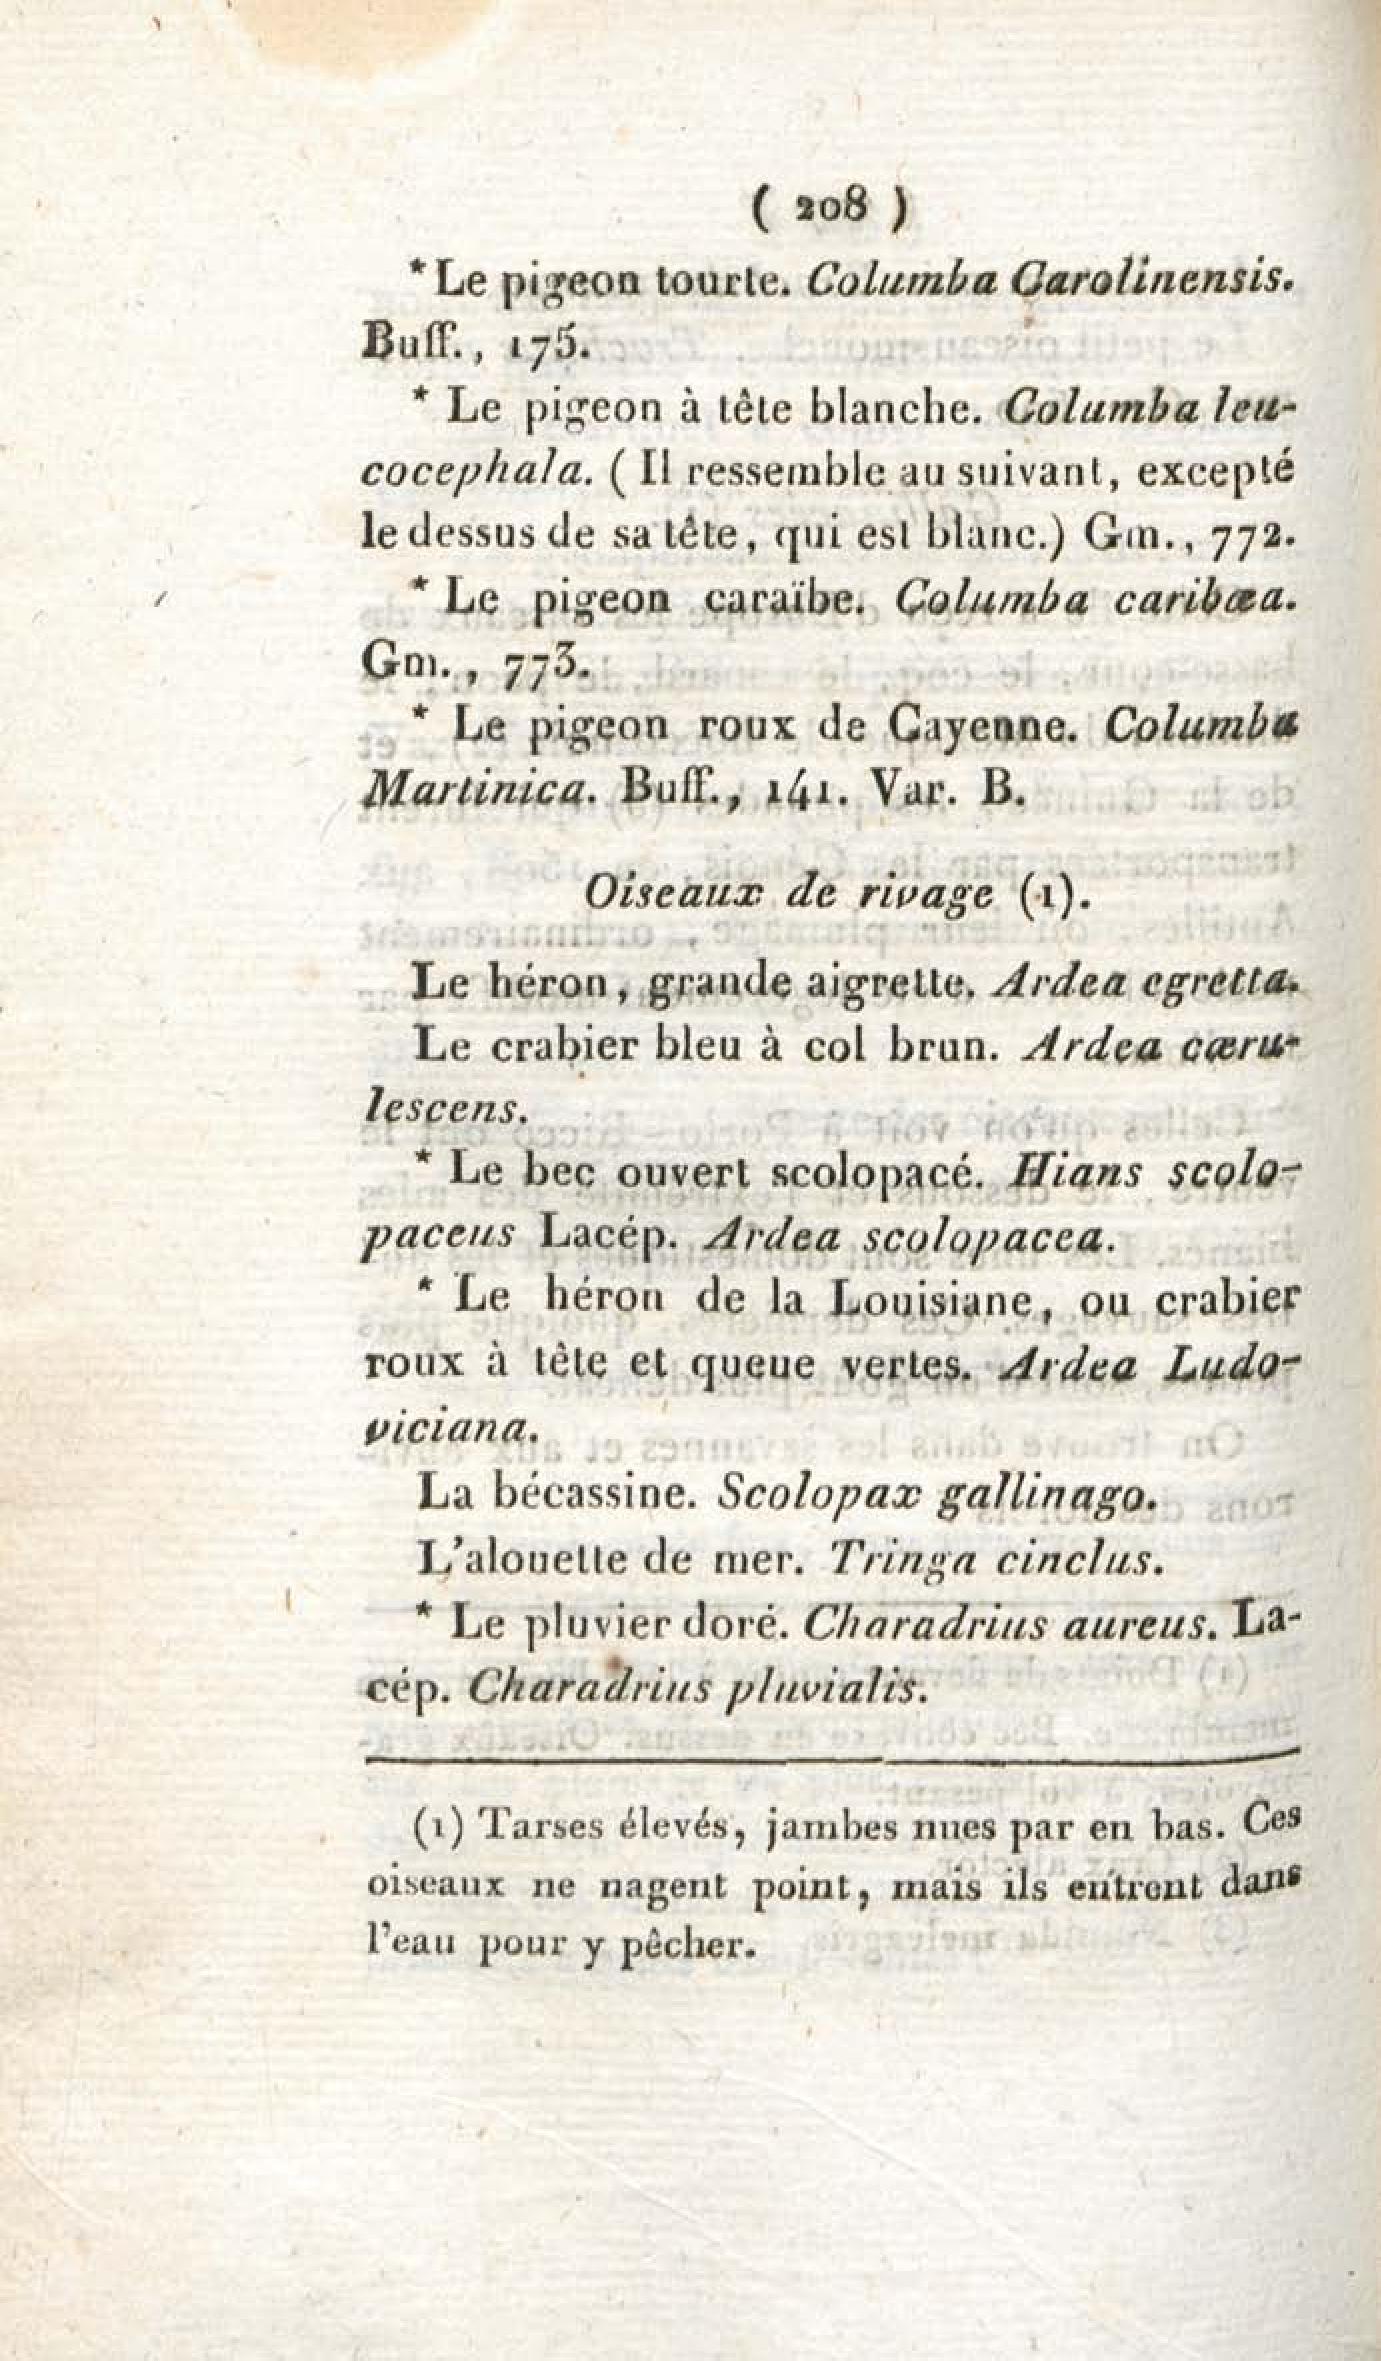 ( 208 )
* Le pigeon tourte. Columba Carolinensis.
Buff., 175.
* Le pigeon à tête blanche. Columba leu-
cocephala. ( Il ressemble au suivant, excepté
le dessus de sa tête, qui est blanc.) Gm., 772.
* Le pigeon caraïbe. Columba caribœa.
Gm., 773.
* Le pigeon roux de Cayenne. Columba
Martinica. Buff., 141. Var. B.
Oiseaux de rivage (1).
Le héron, grande aigrette. Ardea egretta.
Le crabier bleu à col brun. Ardea cœru-
lescens.
* Le bec ouvert scolopacé. Hians scolo-
paceus Lacép. Ardea scolopacea.
* Le héron de la Louisiane, ou crabier
roux à tête et queue vertes. Ardea Ludo-
viciana.
La bécassine. Scolopax gallinago.
L'alouette de mer. Tringa cinclus.
* Le pluvier doré. Charadrius aureus. La-
cép. Charadrius pluvialis.
(1) Tarses élevés, jambes nues par en bas. Ces
oiseaux ne nagent point, mais ils entrent dans
l'eau pour y pêcher.